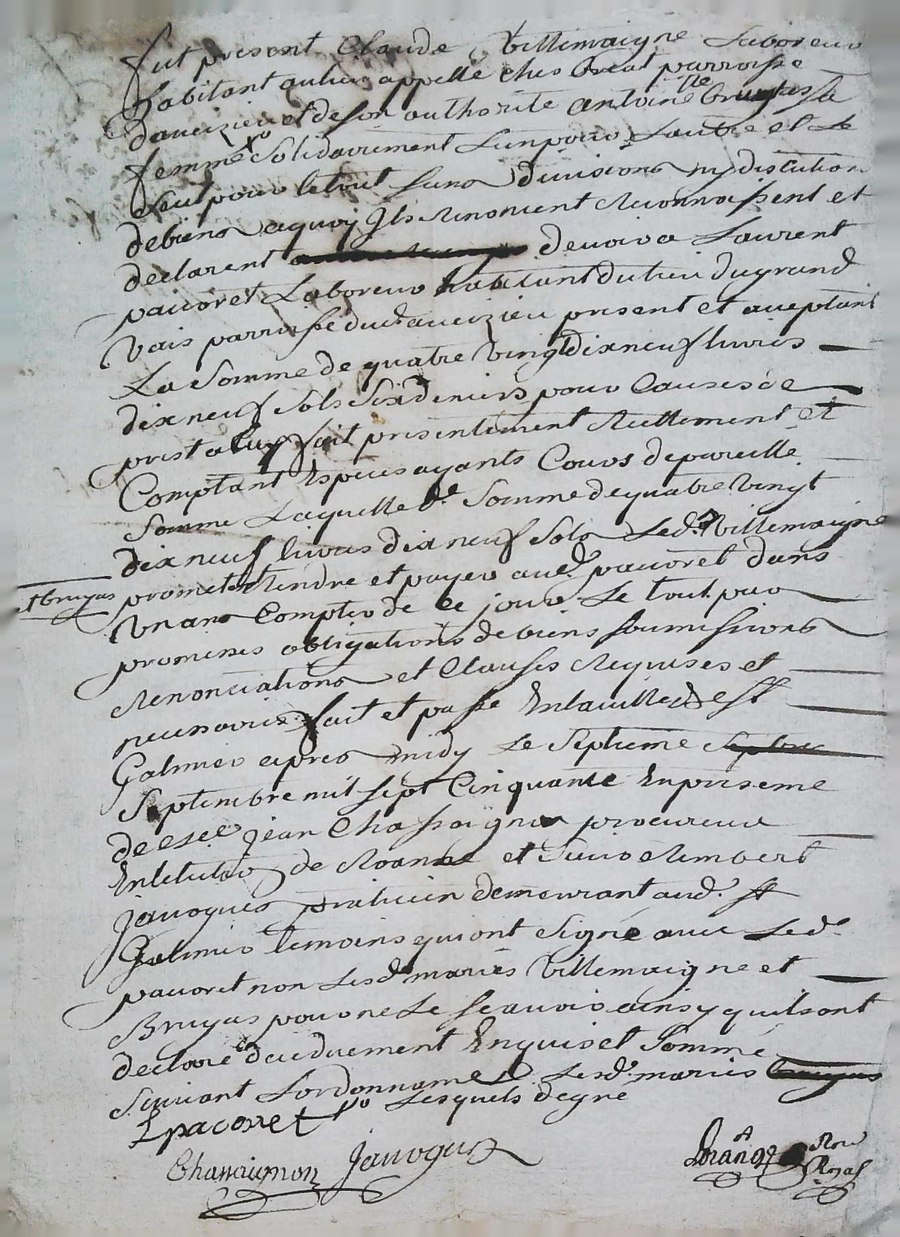 fut present Claude Villemaigne Laboreur
habitant au lieu appellé ches Breat parroisse
daveizieu et de son authorité antoinette bruyas sa
femme solidairement lun pour Lautre et Le
seul pour le tout sans divisions ny distution
de biens a quoy Ils Renoncent Reconnaissent et
declarent devoir a Laurent
pacoret Laboreur habitant du lieu du grand
Vais parroisse dud. aveizieu present et aceptant
La Somme de quatre vingt dix neuf livres
dix neuf Sols Six deniers pour Causes de
prest a luy fait presentement Réellement et
Comptant Especes ayants Cours de pareille
Somme Laquelle de. Somme de quatre vingt
dix neuf livres dix neuf Sols Led. Villemaigne
et bruyas
promettent Rendre et payer aud. pacoret dans
Un an Compter de ce jour Le tout par
promesses obligations de biens soumissions
Renonciations et Clauses Requises et
necessaires fait et passé En la ville de St
Galmier apres midy Le Septieme
Septembre mil sept Cinquante En presence
de Jean Chassaignon procureur
En lelection de Roanne et Sieur Rembert
Javogues praticien demeurant aud. St
Galmier temoins qui ont Signé avec Led.
pacoret non Lesd. mariés Villemaigne et
Bruyas pour ne Le scavoir ainsy quils ont
declaré de ce duement Enquis et Sommé
Suivant Lordonnance Lesd. mariés
Lesquels de gré
L pacoret
Chassaignon Javogues
Nore
Royal